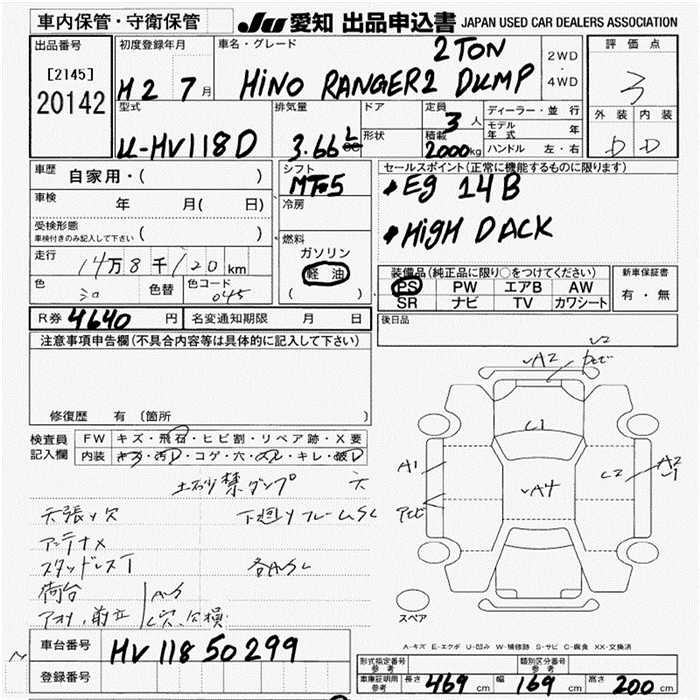 車内保管・守衛保管 JU 愛知 出品申込書 JAPAN USED CAR DEALERS ASSOCIATION
出品番号 初度登録年月 車名・グレード 2 TON 2WD ・ 4WD 評価点
[2145] 20142 H2 7月 HINO RANGER2 DUMP 3
型式 排気量 ドア 定員 3人 ディーラー・並 行 外装 内装
U-HV118D 3.66 L cc 形状 積載 2000kg モデル年式 年 D D
ハンドル 左・右
車歴 自家用・( ) シフト MTF5 セールスポイント(正常に機能するものに限ります)
車検 年 月( 日) 冷房 •Eg 14B
受検形態 車検付きのみ記入して下さい ( ) •HiGH DACK
走行 14万8千120km 燃料 ガソリン 軽油 ( )
色 色替 色コード 045
装備品(純正品に限り○をつけてください) 新車保証書
PS PW エアB AW 有・無
SR ナビ TV カワシート
R券 4640円 名変通知期限 月 日 後日品
注意事項申告欄(不具合内容等は具体的に記入して下さい)
修復歴 有 〔箇所 〕
検査員記入欄 FW キズ・飛石・ヒビ割・リペア跡・X要
内装 キズ・汚レ・コゲ・穴・スレ・キレ・破レ
土砂禁ダンプ
天張り欠 下廻りフレームSL
アンテナX
スタッドレスT 各所SL
荷台
アオリ、前立
A2
C1
A1 A4 C2 A2
アセビ
スペア
A-キズ E-エクボ U-凹み W-補修跡 S-サビ C-腐食 XX-交換済
車台番号 HV118 50299
登録番号
形式指定番号 参考 類別区分番号 参考
車庫証明用 参考 長さ 469 cm 幅 169 cm 高さ 200 cm